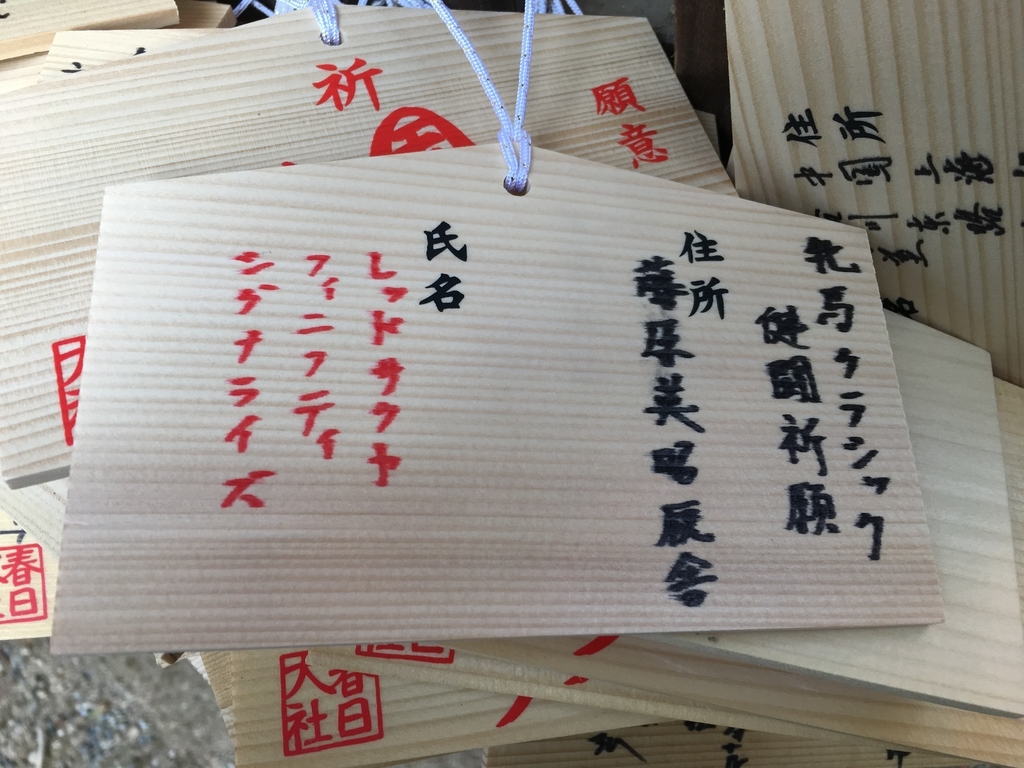 牝馬クラシック
健闘祈願
住所
藤原英昭厩舎
氏名
レッドサクヤ
フィニフティ
シグナライズ
願意
祈
住所
中國上海
春日
大社
春日